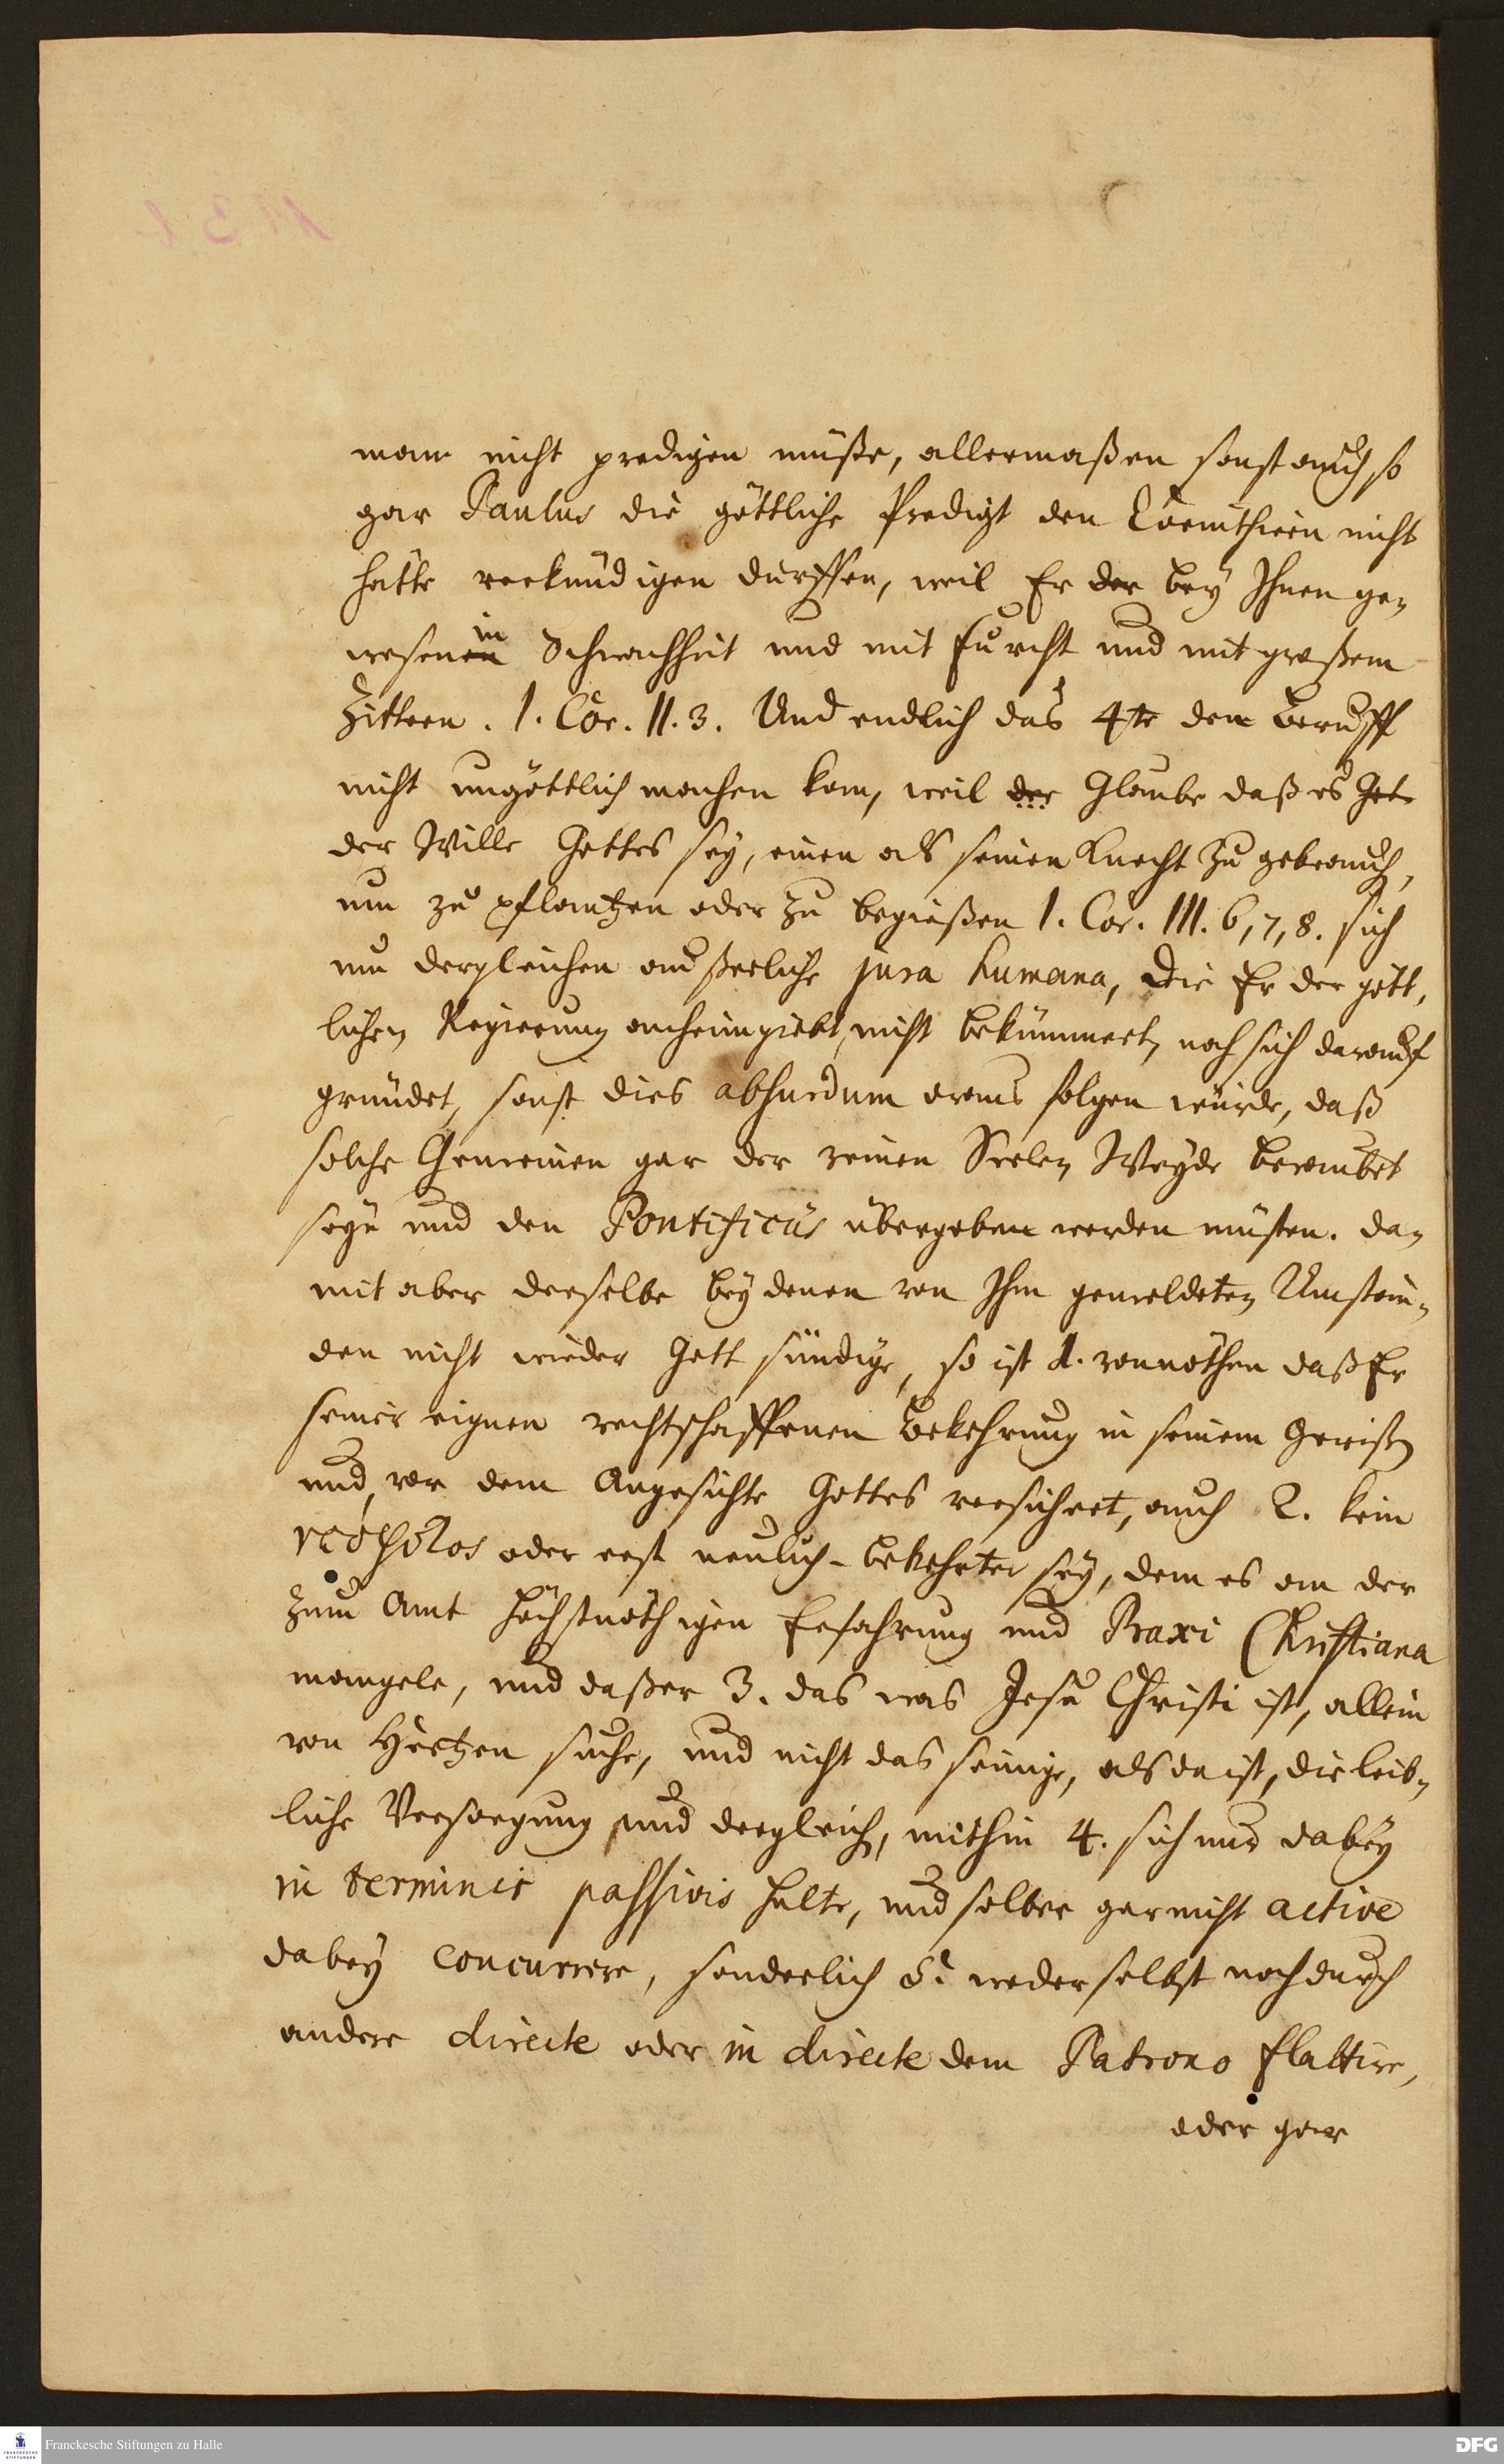 man nicht predigen müße, allermaßen sonst auch so
gar Paulus die göttliche Predigt den Corinthiern nicht
hätte verkündigen dürffen, weil Er der bey Ihnen ge-
wesen in Schwachheit und mit Furcht und mit großem
Zittern. 1. Cor. II. 3. Und endlich das 4te den Beruff
nicht ungöttlich machen kan, weil der Glaube daß es Got
der Wille Gottes sey, einen als seinen Knecht zu gebrauch,
um zu pflantzen oder zu begießen 1. Cor. III. 6, 7, 8. sich
um dergleichen äußerliche jura humana, die Er der gött-
lichen Regierung anheimgiebt, nicht bekümmert, noch sich darauf
gründet, sonst dies absurdum draus folgen würde, daß
solche Gemeinen gar der reinen Seelen Weyde beraubet
seyn und den Pontificiis übergeben werden müsten. Da-
mit aber derselbe bey denen von Ihm gemeldeten Umstän-
den nicht wieder Gott sündige, so ist 1. vonnöthen daß Er
seiner eignen rechtschaffenen Bekehrung in seinem Gewißen
und vor dem Angesichte Gottes versichert, auch 2. kein
νεόφυτος oder erst neulich-bekehrter sey, dem es an der
zum Amt höchstnöthigen Erfahrung und Praxi Christiana
mangele, und daß er 3. das was Jesu Christi ist, allein
von Hertzen suche, und nicht das seinige, als da ist, die leib-
liche Versorgung und dergleich, mithin 4. sich nur dabey
in terminis passivis halte, und selber gar nicht active
dabey concurrire, sonderlich 5. weder selbst noch durch
andere directe oder in directe dem Patrono flattire,
oder gar
Franckesche Stiftungen zu Halle
DFG